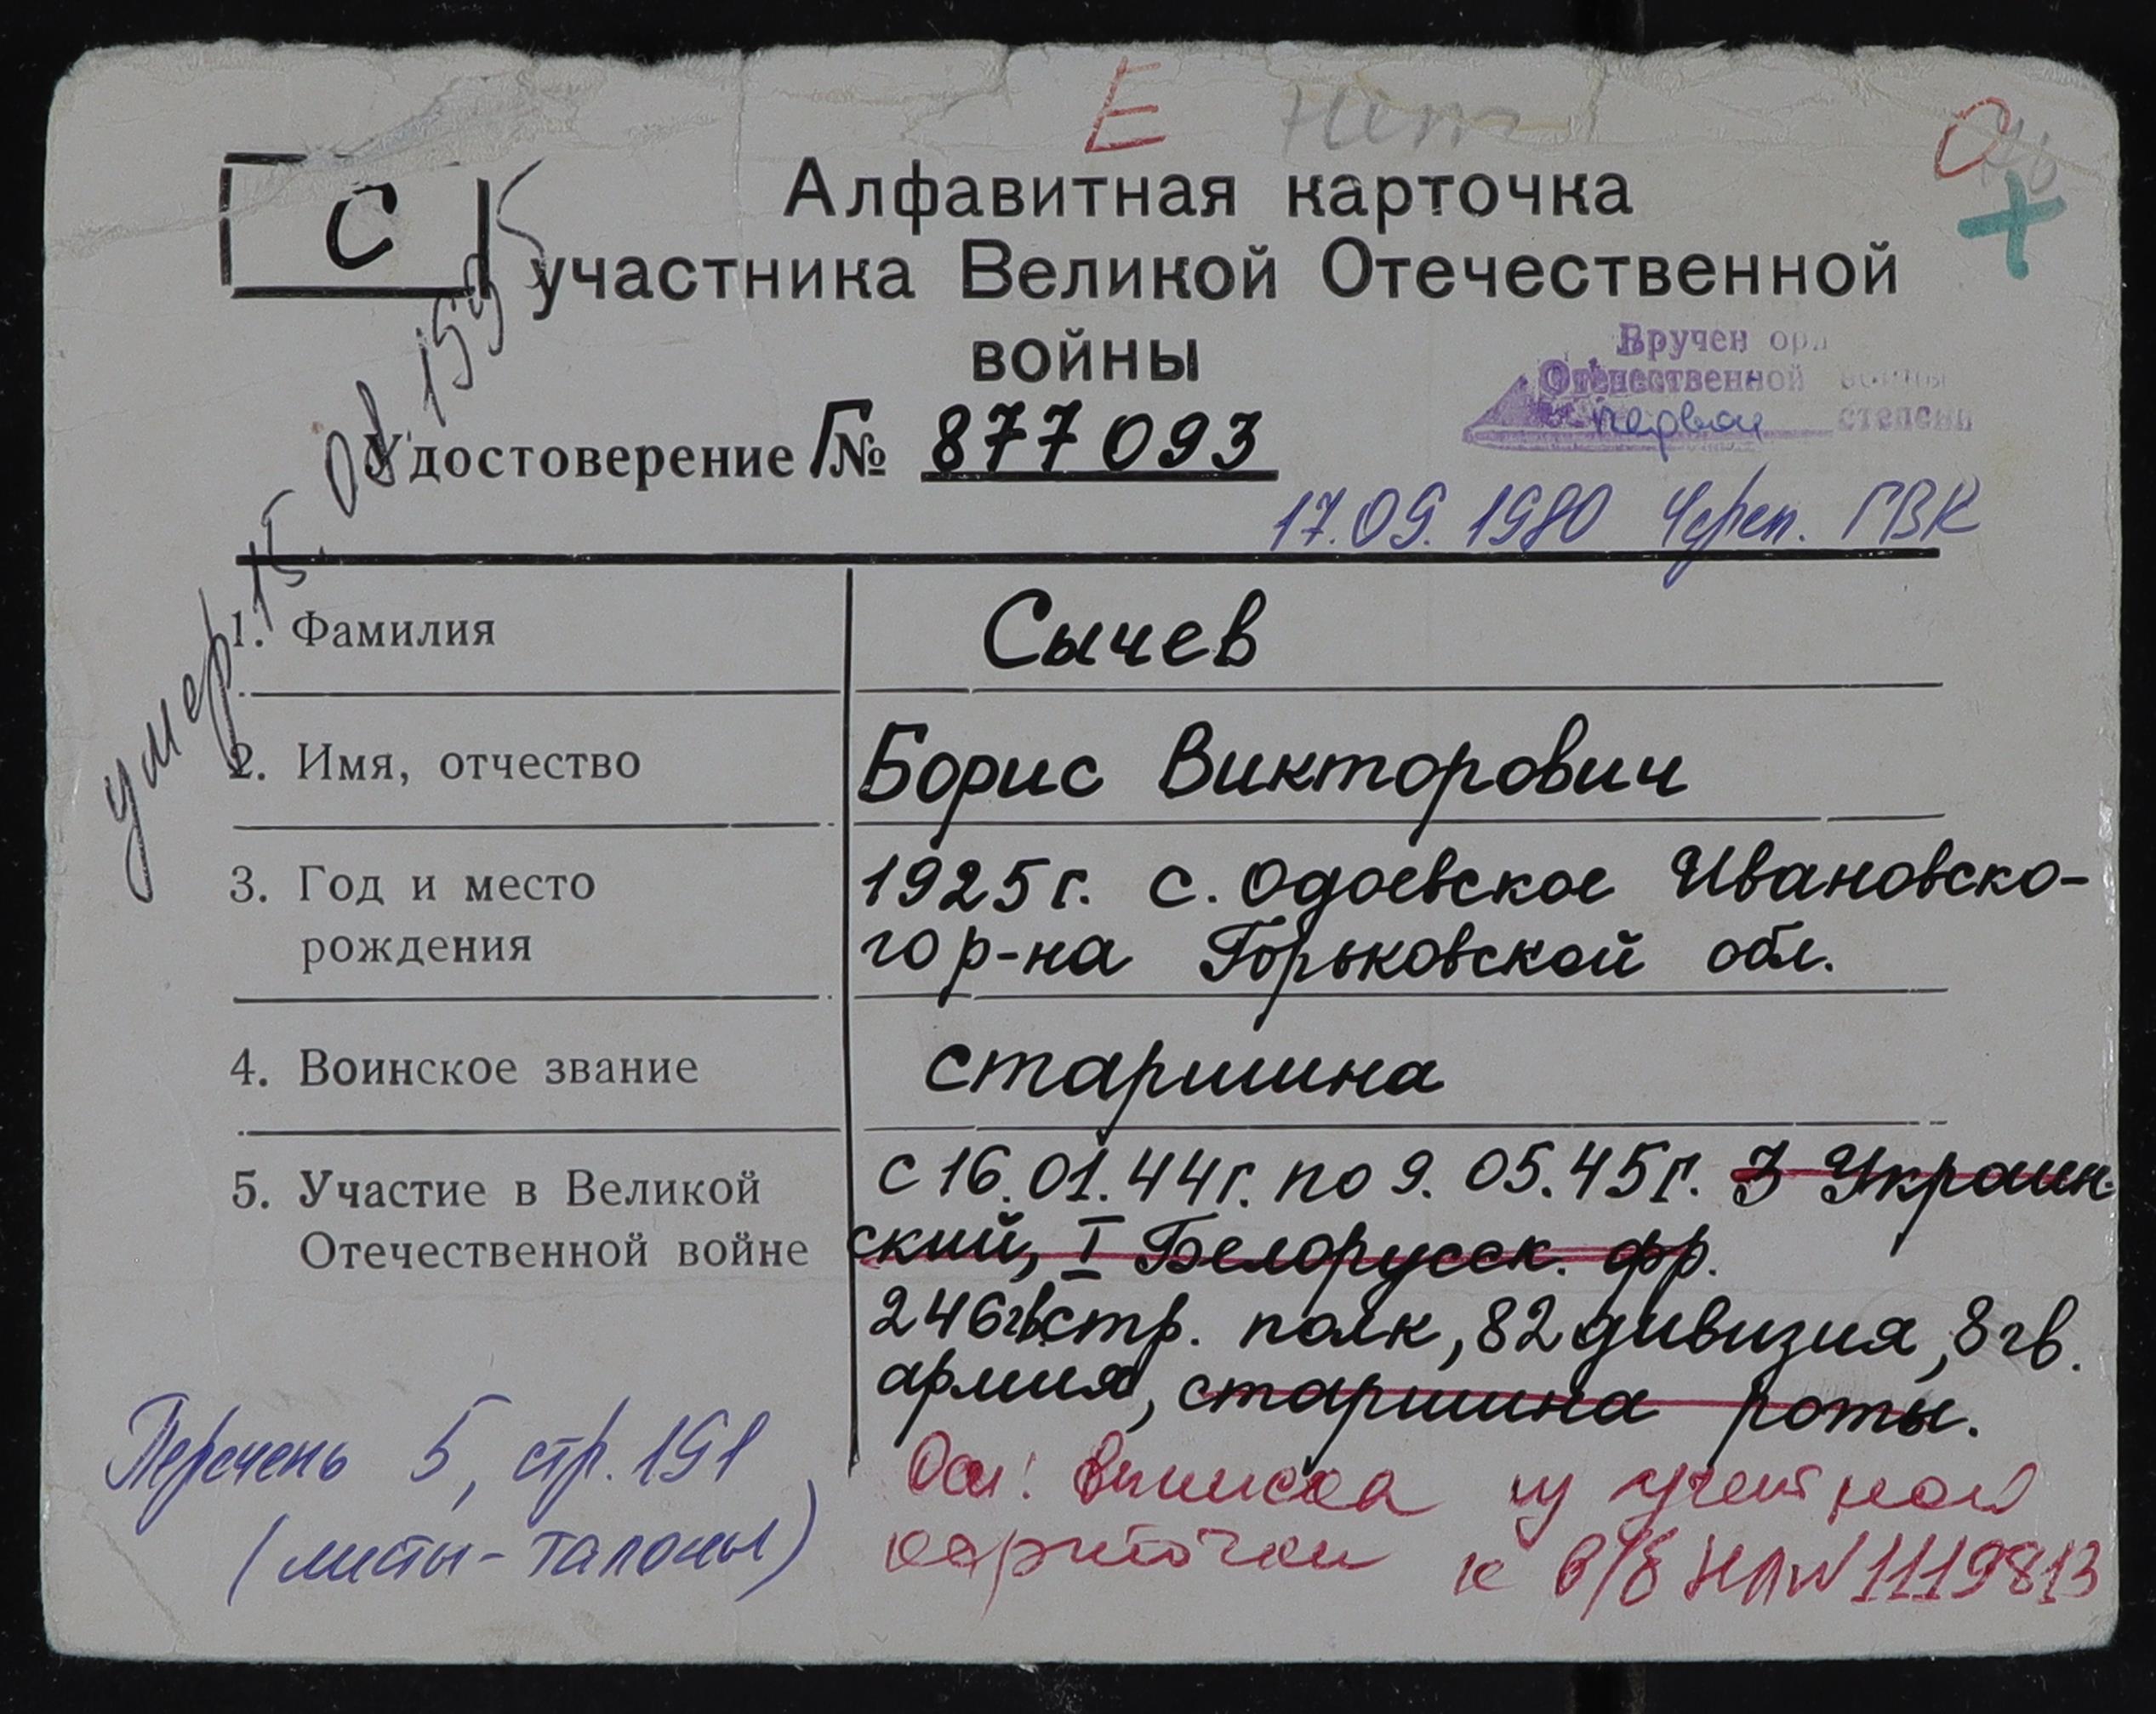 Е
С
Алфавитная карточка
участника Великой Отечественной
войны
Вручен
Отечественной войны
первой степени
Удостоверение Г№ 877093
17.09.1980 Череп. ГВК
умер 15
1. Фамилия Сычев
2. Имя, отчество Борис Викторович
3. Год и место рождения 1925г. с. Одоевское Ивановско-
го р-на Горьковской обл.
4. Воинское звание старшина
5. Участие в Великой Отечественной войне с 16.01.44г. по 9.05.45г. 3 Украин-
ский, I Белорусск. фр.
246гв.стр. полк, 82 дивизия, 8 гв.
армия, старшина роты.
Перечень 5, стр. 191
(листы-талоны)
Осн: выписка из учетной
карточки к в/б НЛ№1119813